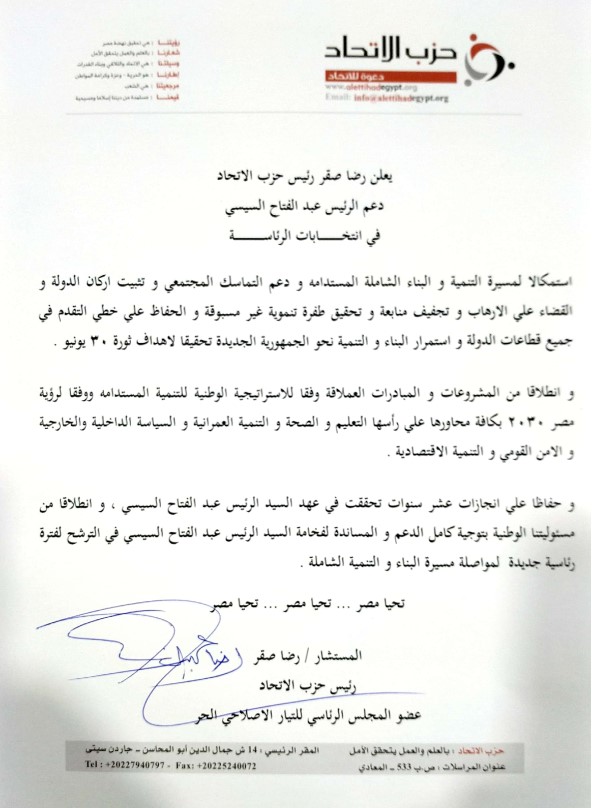 حزب الاتحاد
دعوة للاتحاد
www.alettihadegypt.org
Email: info@alettihadegypt.org
رؤيتنا : هي تحقيق نهضة مصر
شعارنا : بالعلم والعمل يتحقق الأمل
وسيلتنا : هي الاتحاد والتلاقي وبناء القدرات
إطارنا : هو الحرية - وعزة وكرامة المواطن
مرجعيتنا : هي الشعب
قيمنا : مستمدة من ديننا إسلاما ومسيحية
يعلن رضا صقر رئيس حزب الاتحاد
دعم الرئيس عبد الفتاح السيسي
في انتخابات الرئاسة
استمكالا لمسيرة التنمية و البناء الشاملة المستدامه و دعم التماسك المجتمعي و تثبيت اركان الدولة و
القضاء علي الارهاب و تجفيف منابعة و تحقيق طفرة تنموية غير مسبوقة و الحفاظ علي خطي التقدم في
جميع قطاعات الدولة و استمرار البناء و التنمية نحو الجمهورية الجديدة تحقيقا لاهداف ثورة ٣٠ يونيو .
و انطلاقا من المشروعات و المبادرات العملاقة وفقا للاستراتيجية الوطنية للتنمية المستدامه ووفقا لرؤية
مصر ٢٠٣٠ بكافة محاورها علي رأسها التعليم و الصحة و التنمية العمرانية و السياسة الداخلية والخارجية
و الامن القومي و التنمية الاقتصادية .
و حفاظا علي انجازات عشر سنوات تحققت في عهد السيد الرئيس عبد الفتاح السيسي ، و انطلاقا من
مسئوليتنا الوطنية بتوجية كامل الدعم و المساندة لفخامة السيد الرئيس عبد الفتاح السيسي في الترشح لفترة
رئاسية جديدة لمواصلة مسيرة البناء و التنمية الشاملة .
تحيا مصر ... تحيا مصر ... تحيا مصر
المستشار / رضا صقر
رئيس حزب الاتحاد
عضو المجلس الرئاسي للتيار الاصلاحي الحر
حزب الاتحاد : بالعلم والعمل يتحقق الأمل
عنوان المراسلات : ص.ب 533 ـ المعادي
المقر الرئيسي : 14 ش جمال الدين أبو المحاسن ـ جاردن سيتى
Tel : +20227940797 - Fax: +20225240072